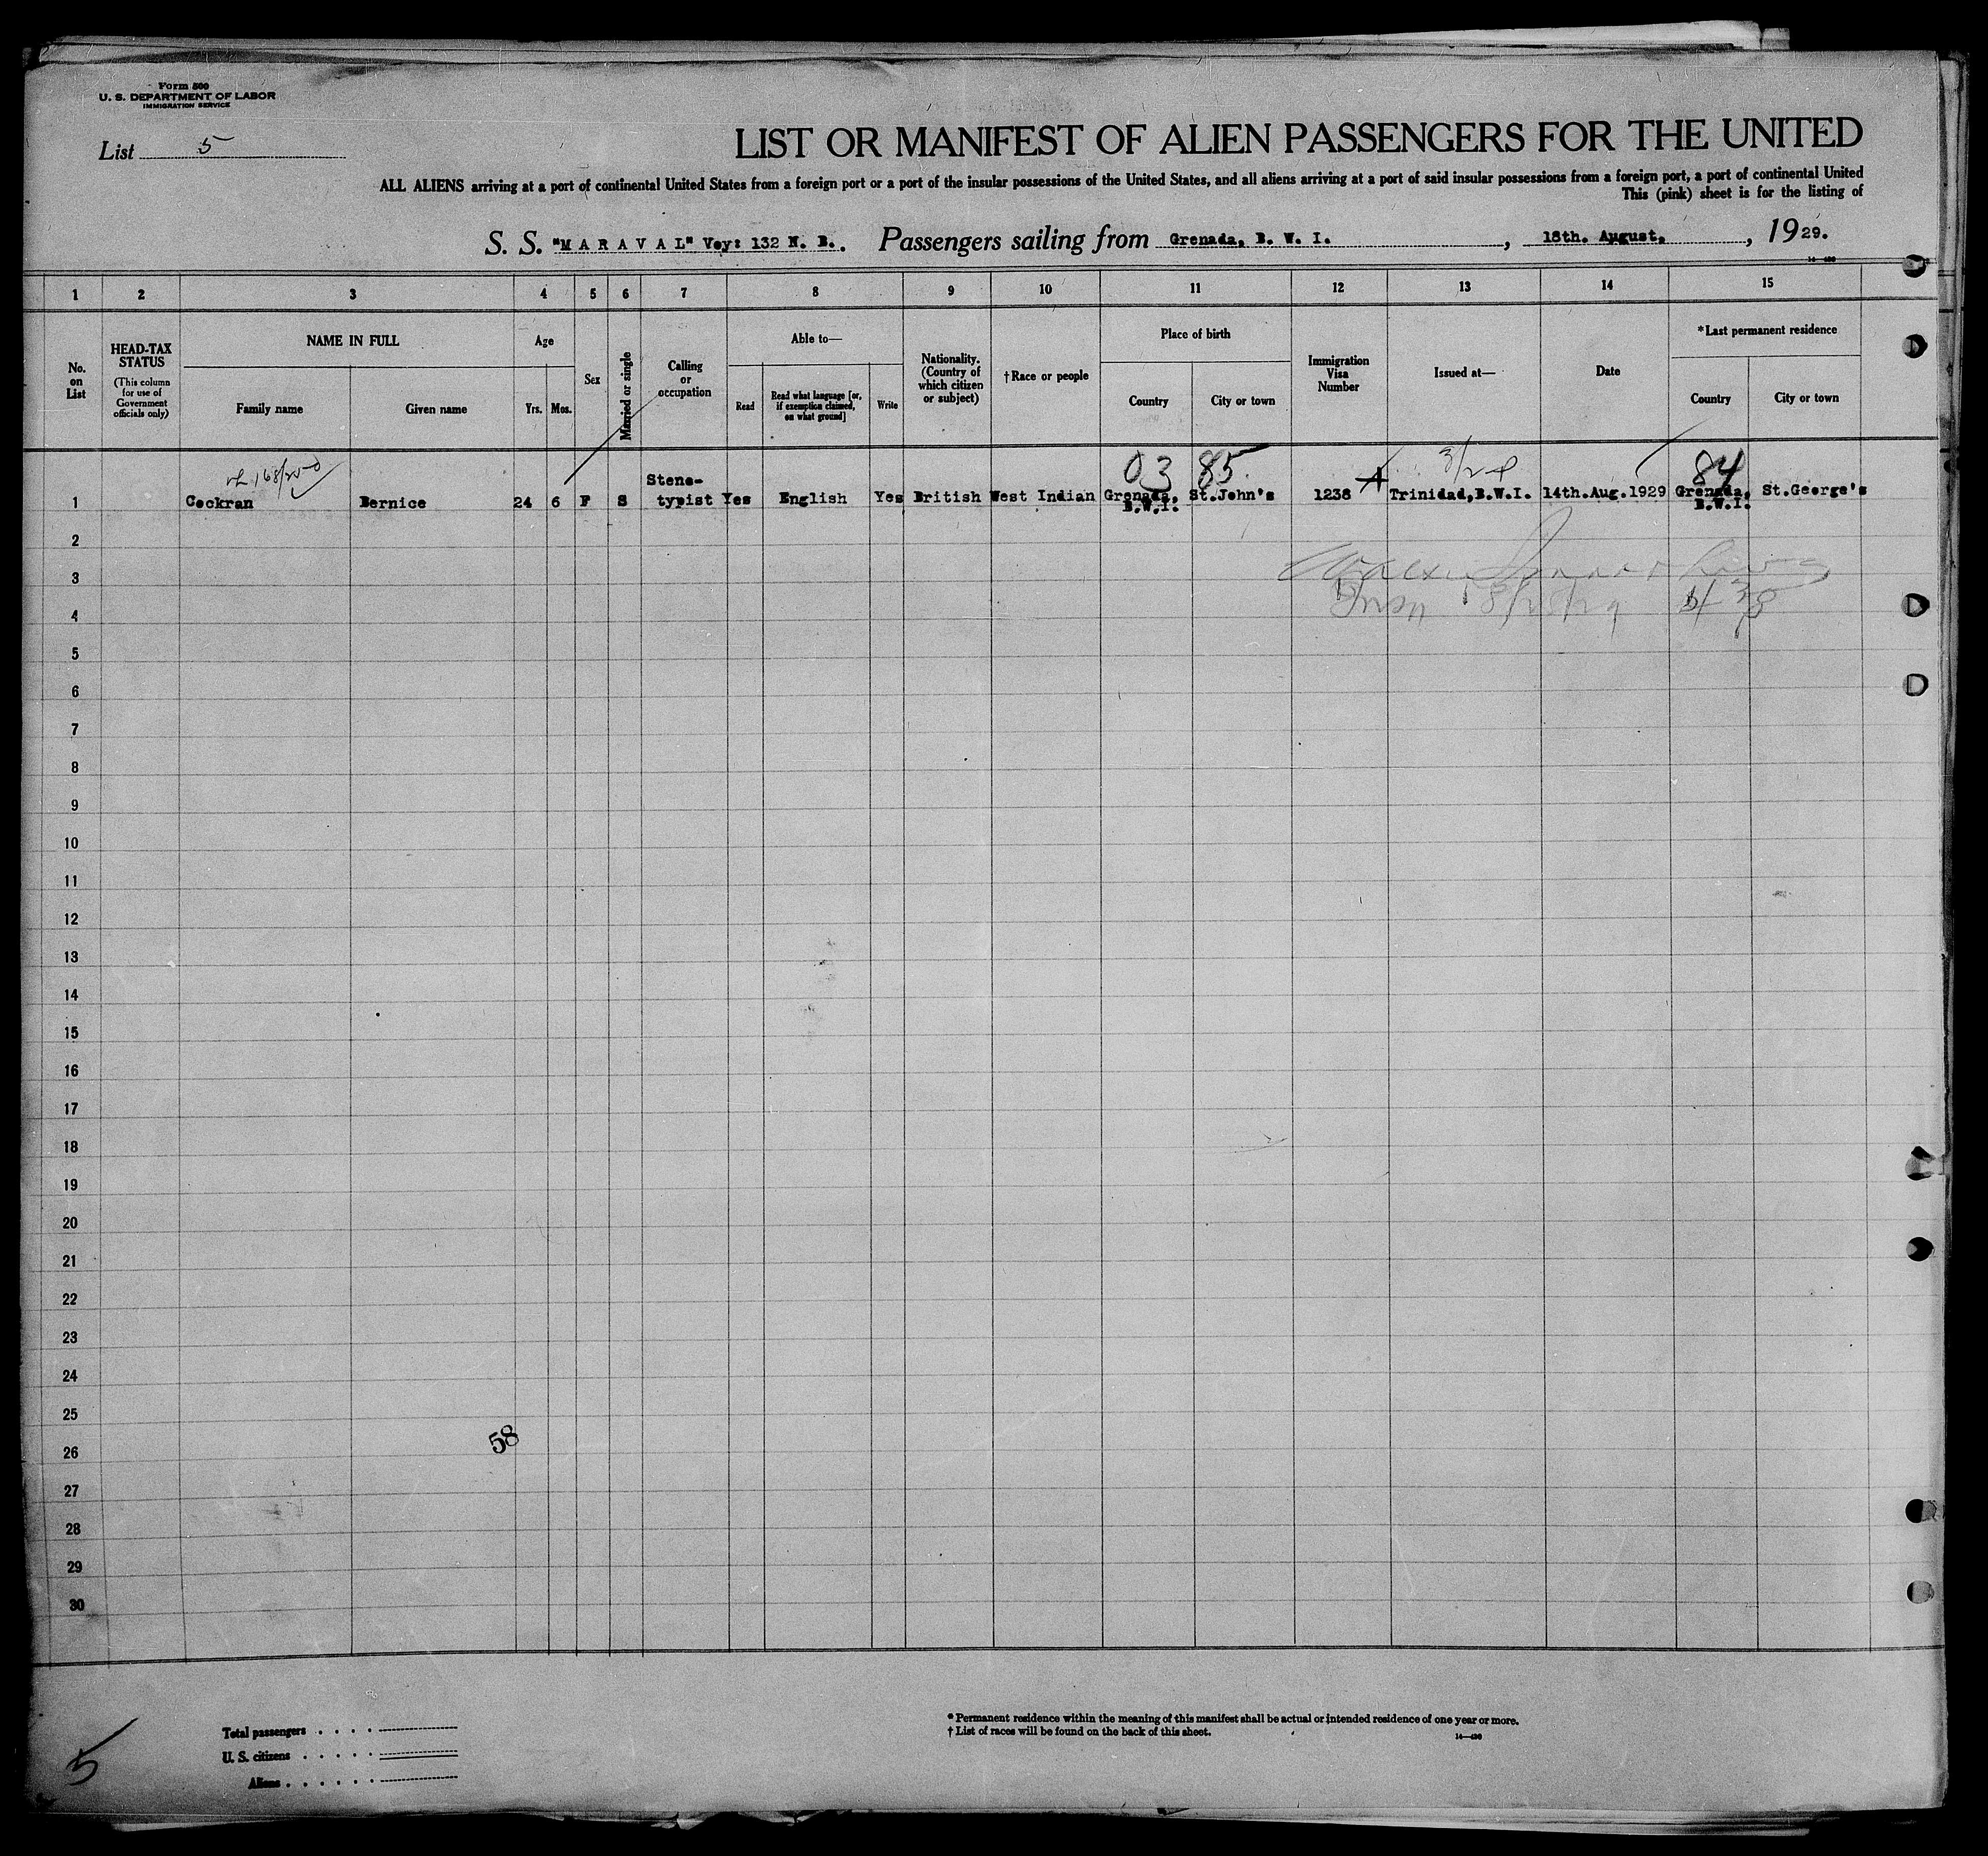 Form 500
U. S. DEPARTMENT OF LABOR
IMMIGRATION SERVICE
List 5
LIST OR MANIFEST OF ALIEN PASSENGERS FOR THE UNITED
ALL ALIENS arriving at a port of continental United States from a foreign port or a port of the insular possessions of the United States, and all aliens arriving at a port of said insular possessions from a foreign port, a port of continental United
This (pink) sheet is for the listing of
S. S. "M A R A V A L" Voy: 132 N. B. Passengers sailing from Grenada, B. W. I., 18th. August, 1929.
1 2 3 4 5 6 7 8 9 10 11 12 13 14 15
No. on List
HEAD-TAX STATUS
(This column for use of Government officials only)
NAME IN FULL
Family name
Given name
Age
Yrs.
Mos.
Sex
Married or single
Calling or occupation
Able to—
Read
Read what language [or, if exemption claimed, on what ground]
Write
Nationality. (Country of which citizen or subject)
†Race or people
Place of birth
Country
City or town
Immigration Visa Number
Issued at—
Date
*Last permanent residence
Country
City or town
03 85 3/24 84
1 Cockran Bernice 24 6 F S Steno-typist Yes English Yes British West Indian Grenada, B.W.I. St.John's 1238 Trinidad,B.W.I. 14th.Aug.1929 Grenada, B.W.I. St.George's
2
3
4
5
6
7
8
9
10
11
12
13
14
15
16
17
18
19
20
21
22
23
24
25
58
26
27
28
29
30
Total passengers
U. S. citizens
Aliens
* Permanent residence within the meaning of this manifest shall be actual or intended residence of one year or more.
† List of races will be found on the back of this sheet.
5